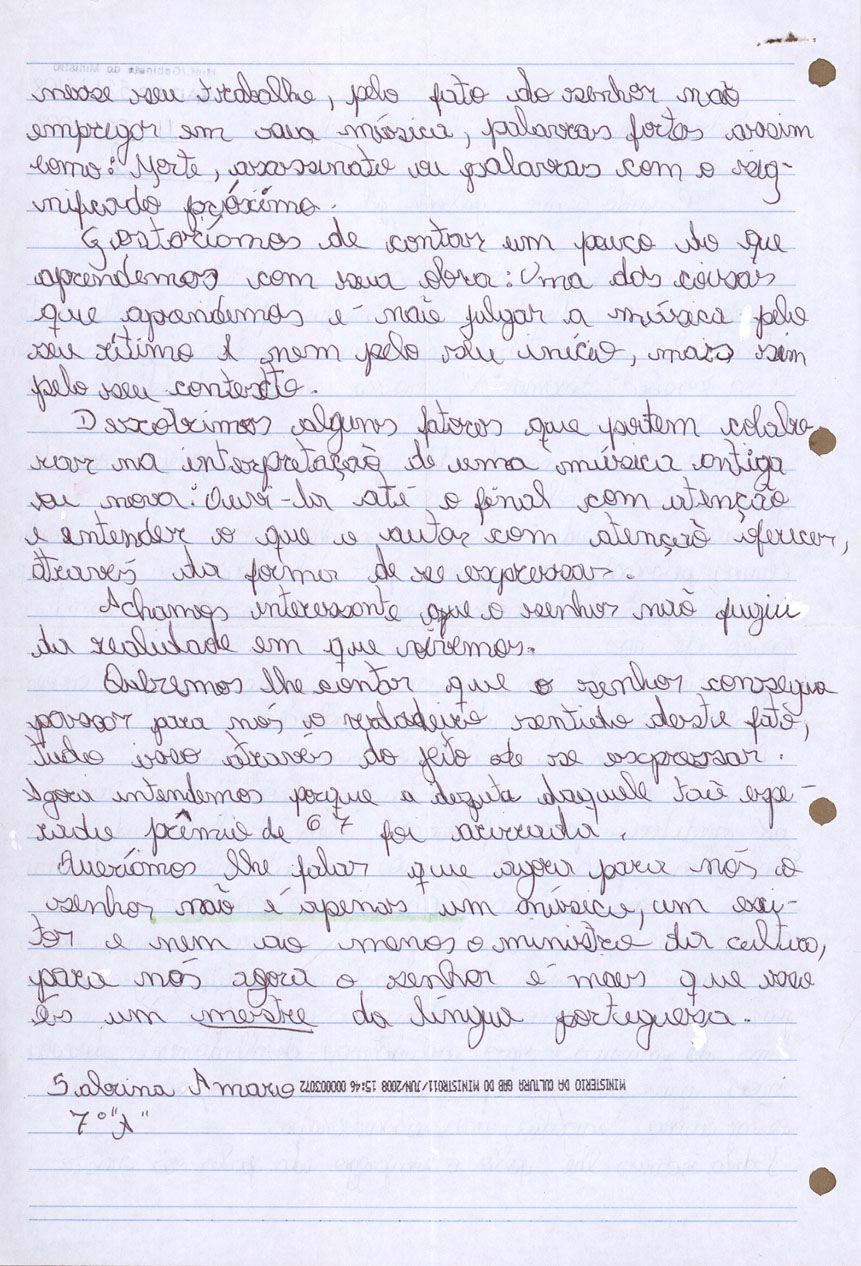 nesse seu trabalho, pelo fato do senhor não
empregar em sua música, palavras fortes assim
como: Morte, assassinato ou palavras com o sig-
nificado próximo.
Gostaríamos de contar um pouco do que
aprendemos com sua obra: Uma das coisas
que aprendemos é não julgar a música pelo
seu rítimo e nem pelo seu início, mais sim
pelo seu contexto.
Descobrimos alguns fatores que podem colabo
rar na interpretação de uma música antiga
ou nova: Ouvi-la até o final com atenção
e entender o que o autor com atenção oferecer,
através da forma de se expressar.
Achamos interessante que o senhor não fugiu
da realidade em que vivemos.
Queremos lhe contar que o senhor conseguiu
passar para nós o verdadeiro sentido deste fato,
tudo isso através do jeito de se expressar.
Agora intendemos porque a disputa daquele tão espe-
rado prêmio de 67 foi acirrada.
Queríamos lhe falar que agora para nós o
senhor não é apenas um músico, um escri-
tor e nem ao menos o ministro da cultura,
para nós agora o senhor é mais que isso
és um mestre da língua portuguesa.
Sabrina Amario
MINISTERIO DA CULTURA GAB DO MINISTRO11/JUN/2008 15:46 000003072
7º "A"